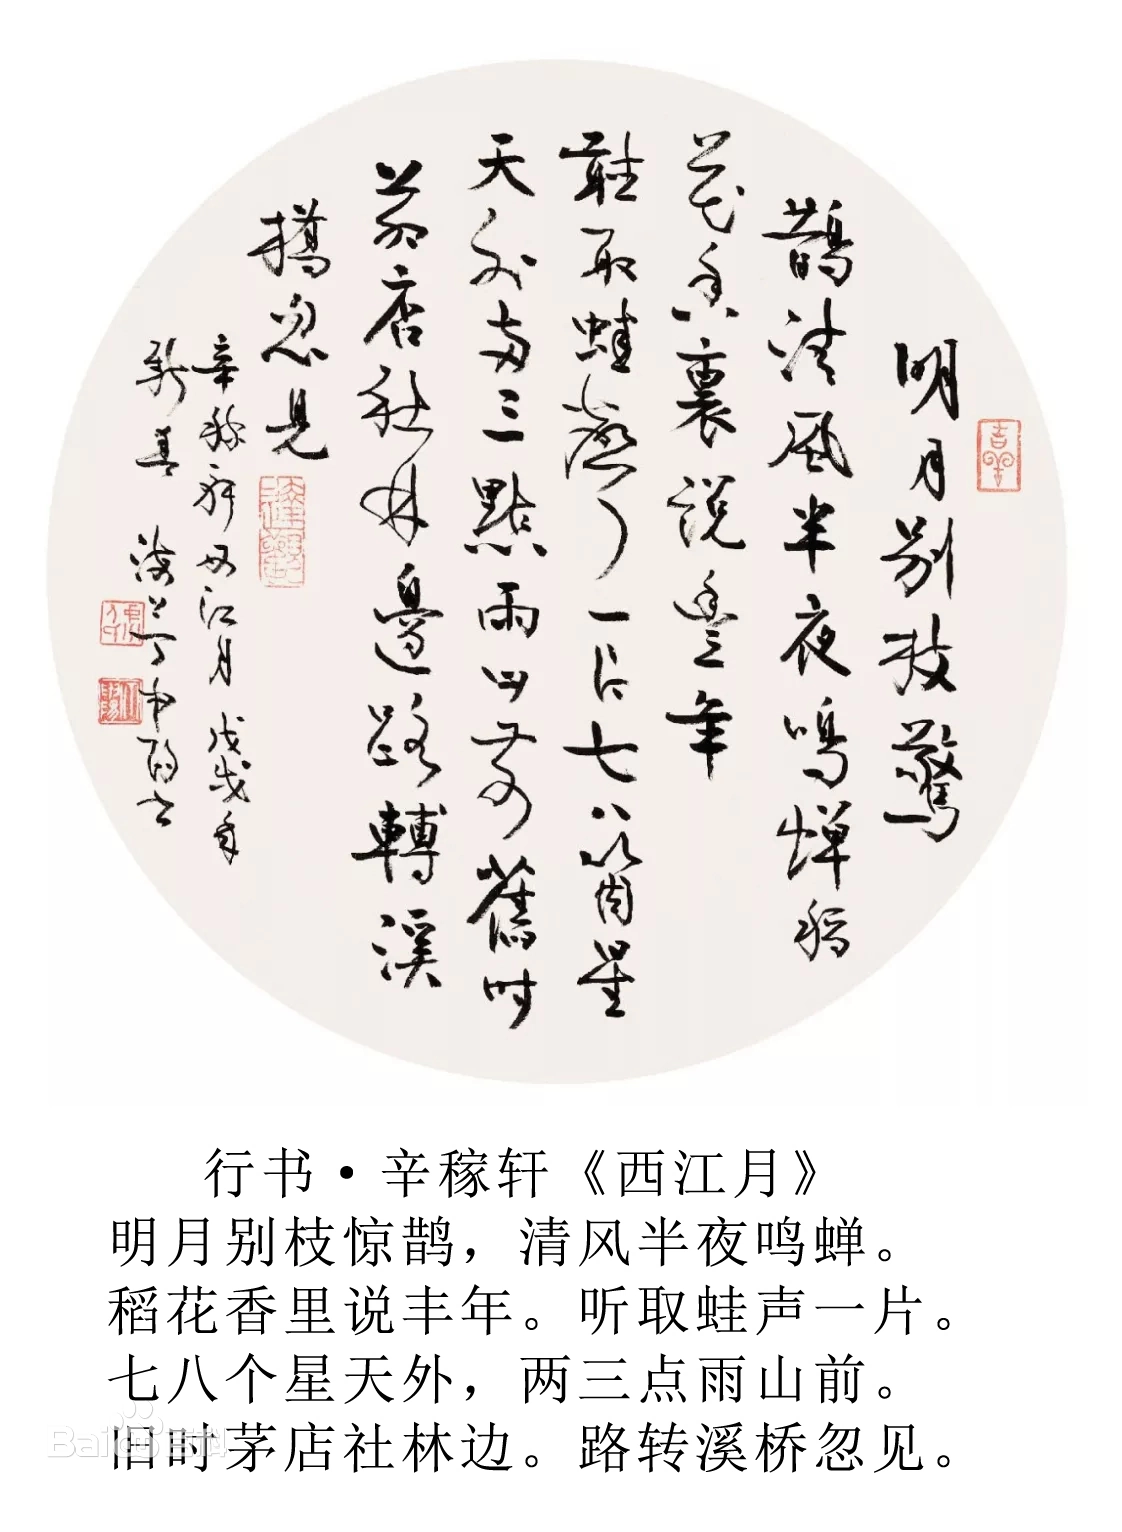 明月别枝驚
鹊清風半夜鳴蝉稻
花香裏説豐年
聽取蛙聲一片七八箇星
天外两三點雨山前舊時
茅店社林邊路轉溪
橋忽見
辛稼轩西江月 戊戌年
新春
行书·辛稼轩《西江月》
明月别枝惊鹊，清风半夜鸣蝉。
稻花香里说丰年。听取蛙声一片。
七八个星天外，两三点雨山前。
旧时茅店社林边。路转溪桥忽见。
Baidu百科